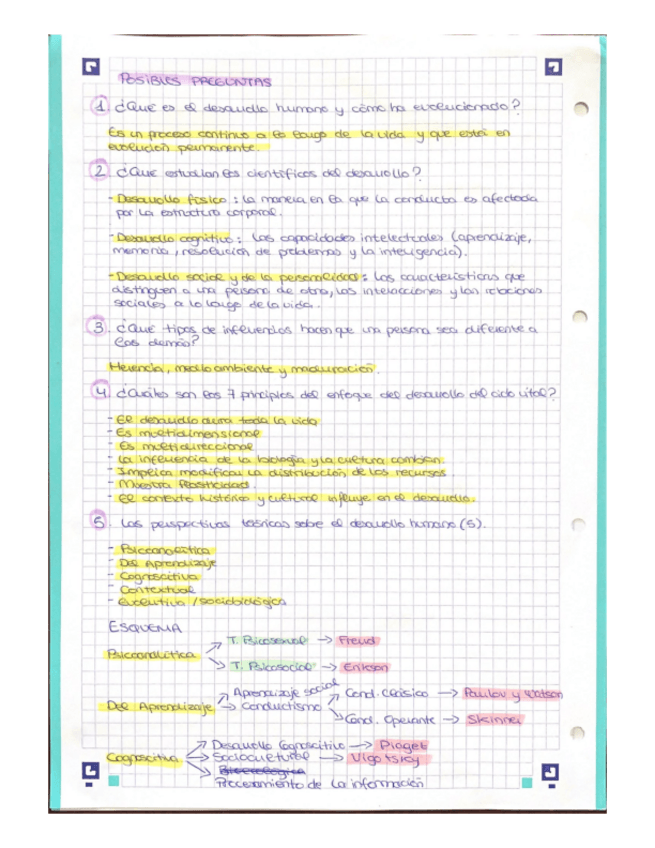 POSIBLES PREGUNTAS
1. ¿Qué es el desarrollo humano y cómo ha evolucionado?
Es un proceso continuo a lo largo de la vida y que está en
evolución permanente.
2. ¿Qué estudian los científicos del desarrollo?
- Desarrollo físico: la manera en la que la conducta es afectada
por la estructura corporal.
- Desarrollo cognitivo: las capacidades intelectuales (aprendizaje,
memoria, resolución de problemas y la inteligencia).
- Desarrollo social y de la personalidad: las características que
distinguen a una persona de otra, las interacciones y las relaciones
sociales a lo largo de la vida.
3. ¿Qué tipos de influencias hacen que una persona sea diferente a
los demás?
Herencia, medio ambiente y maduración.
4. ¿Cuáles son los 7 principios del enfoque del desarrollo del ciclo vital?
- El desarrollo dura toda la vida
- Es multidimensional
- Es multidireccional
- La influencia de la biología y la cultura cambian.
- Implica modificar la distribución de los recursos.
- Muestra plasticidad.
- El contexto histórico y cultural influye en el desarrollo.
5. Las perspectivas teóricas sobre el desarrollo humano (5).
- Psicoanalítica
- Del Aprendizaje
- Cognoscitiva
- Contextual
- Evolutiva / sociobiológica
ESQUEMA
Psicoanalítica
T. Psicosexual → Freud
T. Psicosocial → Erikson
Del Aprendizaje
Aprendizaje social
Conductismo
Cond. Clásico → Paulov y Watson
Cond. Operante → Skinner
Cognoscitiva
Desarrollo Cognoscitivo → Piaget
Sociocultural → Vigotsky
Procesamiento de la información